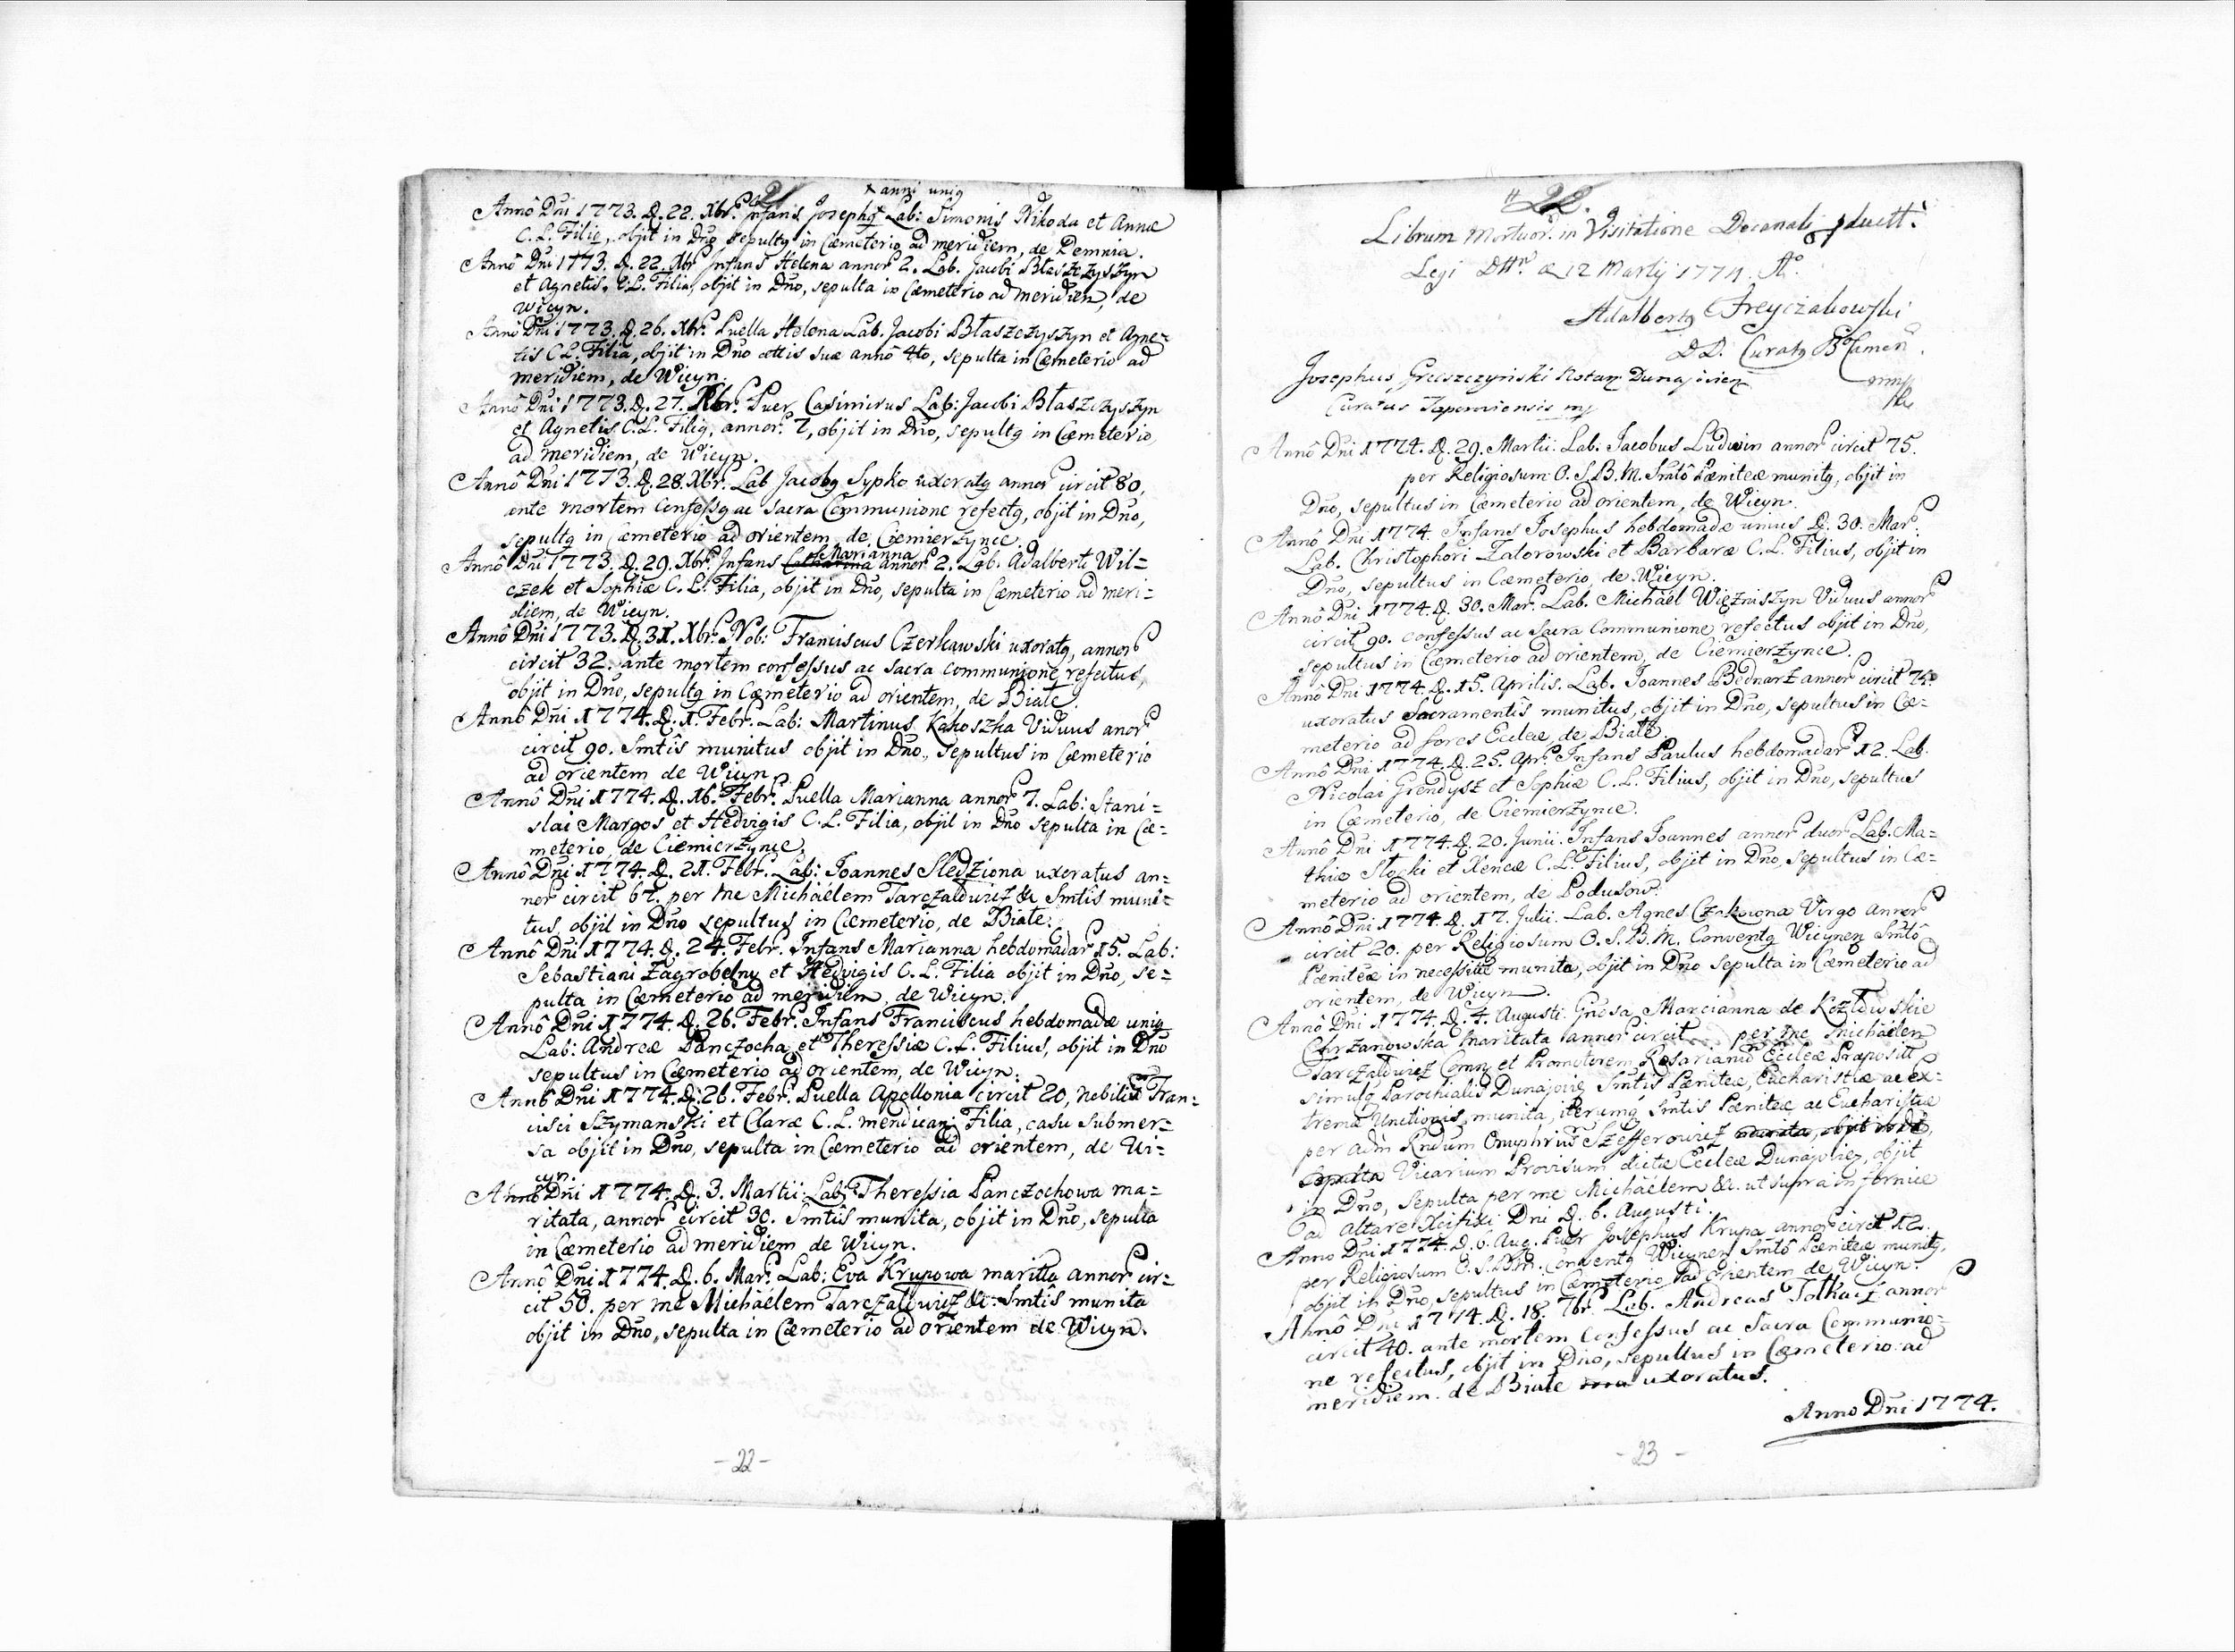 21
x anni unig
Annô Dni 1773. D. 22. Xbr. Infans Josephg x Lab: Simonis Nikoda et Annæ
C. L. Filig, objit in Dno sepultg in Cæmeterio ad meridiem, de Demnia.
Annô Dni 1773. D. 22. Xbr Infans Helena annor 2. Lab. Jacobi Błaszczyszyn
et Agnetis. C. L. Filia, objit in Dno, sepulta in Cæmeterio ad meridiem, de
Wicyn.
Annô Dni 1773. D. 26. Xbr. Puella Helena Lab. Jacobi Błaszczyszyn et Agne=
tis C. L. Filia, objit in Dno ættis suæ annô 4to, sepulta in Cæmeterio ad
meridiem, de Wicyn.
Annô Dni 1773. D. 27. Xbr. Puer Casimirus Lab: Jacobi Błaszczyszyn
et Agnetis C. L. Filig, annor. 7, objit in Dno, sepultg in Cæmeterio
ad meridiem, de Wicyn.
Annô Dni 1773. D. 28. Xbr. Lab Jacobg Sypko uxoratg annor circit 80,
ante mortem Confessg ac Sacra Communione refectg, objit in Dno,
sepultg in Cæmeterio ad orientem de Ciemierzynce.
Marianna
Annô Dni 1773. D. 29. Xbr. Infans Catharina annor 2. Lab. Adalberti Wil=
czek et Sophiæ C. L. Filia, objit in Dno, sepulta in Cæmeterio ad meri=
diem, de Wicyn.
Annô Dni 1773. D. 31. Xbr. Nob: Franciscus Czerkawski uxoratg, annor
circit 32. ante mortem confessus ac sacra communione refectus,
objit in Dno, sepultg in Cæmeterio ad orientem, de Białe.
Annô Dni 1774. D. 1. Febr. Lab: Martinus Kakoszka Viduus anor
circit 90. Smtîs munitus objit in Dno, sepultus in Cæmeterio
ad orientem de Wicyn.
Annô Dni 1774. D. 16. Febr. Puella Marianna annor 7. Lab: Stani=
slai Margos et Hedvigis C. L. Filia, objit in Dno sepulta in Cæ=
meterio, de Ciemierzynce.
Annô Dni 1774. D. 21. Febr. Lab: Joannes Sledziona uxoratus an=
nor circit 67. per me Michäélem Tarczałowicz &c Smtîs muni=
tus, objit in Dno sepultus in Cæmeterio, de Białe.
Annô Dni 1774. D. 24. Febr. Infans Marianna hebdomadar 15. Lab:
Sebastiani Zagrobelny et Hedvigis C. L. Filia objit in Dno, se=
pulta in Cæmeterio ad meridiem, de Wicyn.
Annô Dni 1774. D. 26. Febr. Infans Franciscus hebdomadæ unig
Lab: Andreæ Panczocha et Theressiæ C. L. Filius, objit in Dno
sepultus in Cæmeterio ad orientem, de Wicyn.
Annô Dni 1774. D. 26. Febr. Puella Apollonia circit 20, nobiliu Fran=
cisci Szymanski et Claræ C. L. mendican Filia, casu submer=
sa objit in Dno, sepulta in Cæmeterio ad orientem, de Wi=
cyn.
Annô Dni 1774. D. 3. Martii. Lab: Theressia Panczochowa ma=
ritata, annor circit 30. Smtîs munita, objit in Dno, sepulta
in Cæmeterio ad meridiem de Wicyn.
Annô Dni 1774. D. 6. Mar. Lab: Eva Krupowa maritta annor cir=
cit 50. per me Michäélem Tarczałowicz &c. Smtîs munita
objit in Dno, sepulta in Cæmeterio ad orientem de Wicyn.
-22-
22.
Librum Mortuor. in Visitatione Decanali
Legi 12 Martij 1774. Ao.
Adalbertg
DD. Curatg
Josephus Gruszczyński Notarz
Curatus
Annô Dni 1774. D. 29. Martii. Lab. Jacobus Ludwin annor circit 75.
per Religiosum O. S. B. M. Smtô Pænitcæ munitg, objit in
Dno, sepultus in Cæmeterio ad orientem, de Wicyn.
Annô Dni 1774. Infans Josephus hebdomadæ unius D. 30. Mar.
Lab. Christophori Zatorowski et Barbaræ C. L. Filius, objit in
Dno, sepultus in Cæmeterio, de Wicyn.
Annô Dni 1774. D. 30. Mar. Lab. Michäel Więzniszyn Viduus annor
circit 90. confessus ac Sacra Communione refectus objit in Dno,
sepultus in Cæmeterio ad orientem, de Ciemierzynce.
Annô Dni 1774. D. 15. Aprilis. Lab. Joannes Bednarz annor circit 74.
uxoratus Sacramentîs munitus, objit in Dno, sepultus in Cæ=
meterio ad fores Eccleæ de Białe.
Annô Dni 1774. D. 25. Apr. Infans Paulus hebdomadar 12. Lab.
Nicolai Grendysz et Sophiæ C. L. Filius, objit in Dno, sepultus
in Cæmeterio, de Ciemierzynce.
Annô Dni 1774. D. 20. Junii. Infans Joannes annor duor Lab. Ma=
thiæ Słocki et Xeneæ C. L. Filius, objit in Dno, sepultus in Cæ=
meterio ad orientem, de Podusow.
Annô Dni 1774. D. 17. Julii. Lab. Agnes Virgo annor
circit 20. per Religiosum O. S. B. M. Conventg Wicynen Smtô
Pænitcæ in necessitte munita, objit in Dno sepulta in Cæmeterio ad
orientem, de Wicyn.
Annô Dni 1774. D. 4. Augusti. Gnosa Marcianna de Kozłowskie
Chrzanowska maritata annor circit per me Michäelem
Tarczałowicz et Promotorem Rosarianu Eccleæ Præposit
simulq Parochialis Dunajovie Smtîs Pænitcæ, Eucharistiæ ac ex=
tremæ Unctionis munita, iterumq Smtîs Pænitcæ ac Eucharistiæ
per adm Rndum Onuphriu Szefferowicz munita, objit in Dno,
sepulta Vicarium Provisum dictæ Eccleæ Dunajovie, objit
in Dno, sepulta per me Michäélem &c. ut supra in fornice
ad altare Xcifixi Dni D. 6. Augusti.
Anno Dni 1774. D. 6. Aug. Puer Josephus Krupa annor circit 12.
per Religiosum O. S. B. M. Conventg Wicynen Smtô Pænitcæ munitg,
objit in Dno, sepultus in Cæmeterio ad orientem de Wicyn.
Annô Dni 1774. D. 18. 7br. Lab. Andreas Tolkacz annor
circit 40. ante mortem Confessus ac Sacra Communio=
ne refectus, objit in Dno, sepultus in Cæmeterio ad
meridiem. de Białe uxoratus.
Anno Dni 1774.
-23-